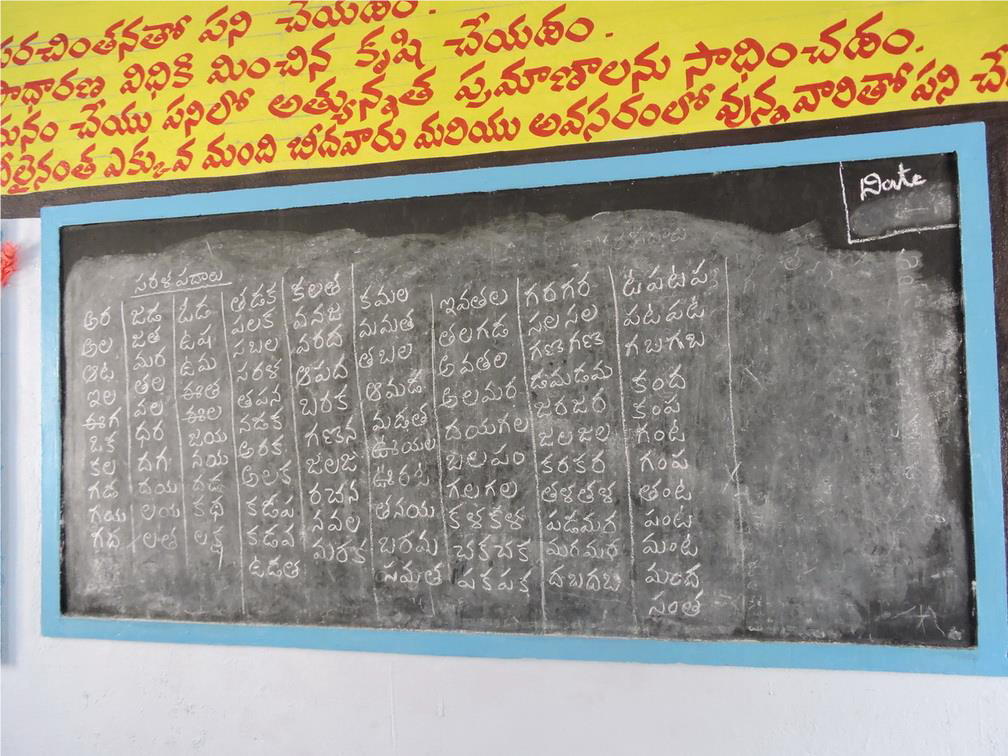 పరచింతనతో పని చేయడం.
సాధారణ విధికి మించిన కృషి చేయడం.
మనం చేయు పనిలో అత్యున్నత ప్రమాణాలను సాధించడం.
వీలైనంత ఎక్కువ మంది బీదవారు మరియు అవసరంలో వున్న వారితో పని చే
Date
సరళ పదాలు
అర
అల
ఆట
ఇల
ఈగ
ఓక
కల
గడ
గయ
గద
జడ
జత
మర
తల
వల
ధర
దగ
దయ
లయ
లత
ఓడ
ఉష
ఉమ
ఈత
ఈల
జయ
నయ
రధ
కథ
లక్ష
తడక
పలక
సబల
సరళ
తపన
నడక
అరక
అలక
కడప
కడవ
ఉడత
కలత
వనజ
వరద
ఆపద
బరక
గణన
జలజ
రచన
నవల
మరక
కమల
మమత
తబల
ఆమడ
మడత
ఊయల
ఊరట
తనయ
బరమ
సమత
ఇవతల
తలగడ
అవతల
అలమర
దయగల
బలపం
గలగల
కళకళ
చకచక
పకపక
గరగర
సలసల
గణగణ
డమడమ
జరజర
జలజల
కరకర
తళతళ
పడమర
మరమర
దబదబ
ఓపటప
పటపట
గబగబ
కంద
కంప
గంట
గంప
తంట
పంట
మంట
మంద
సంత